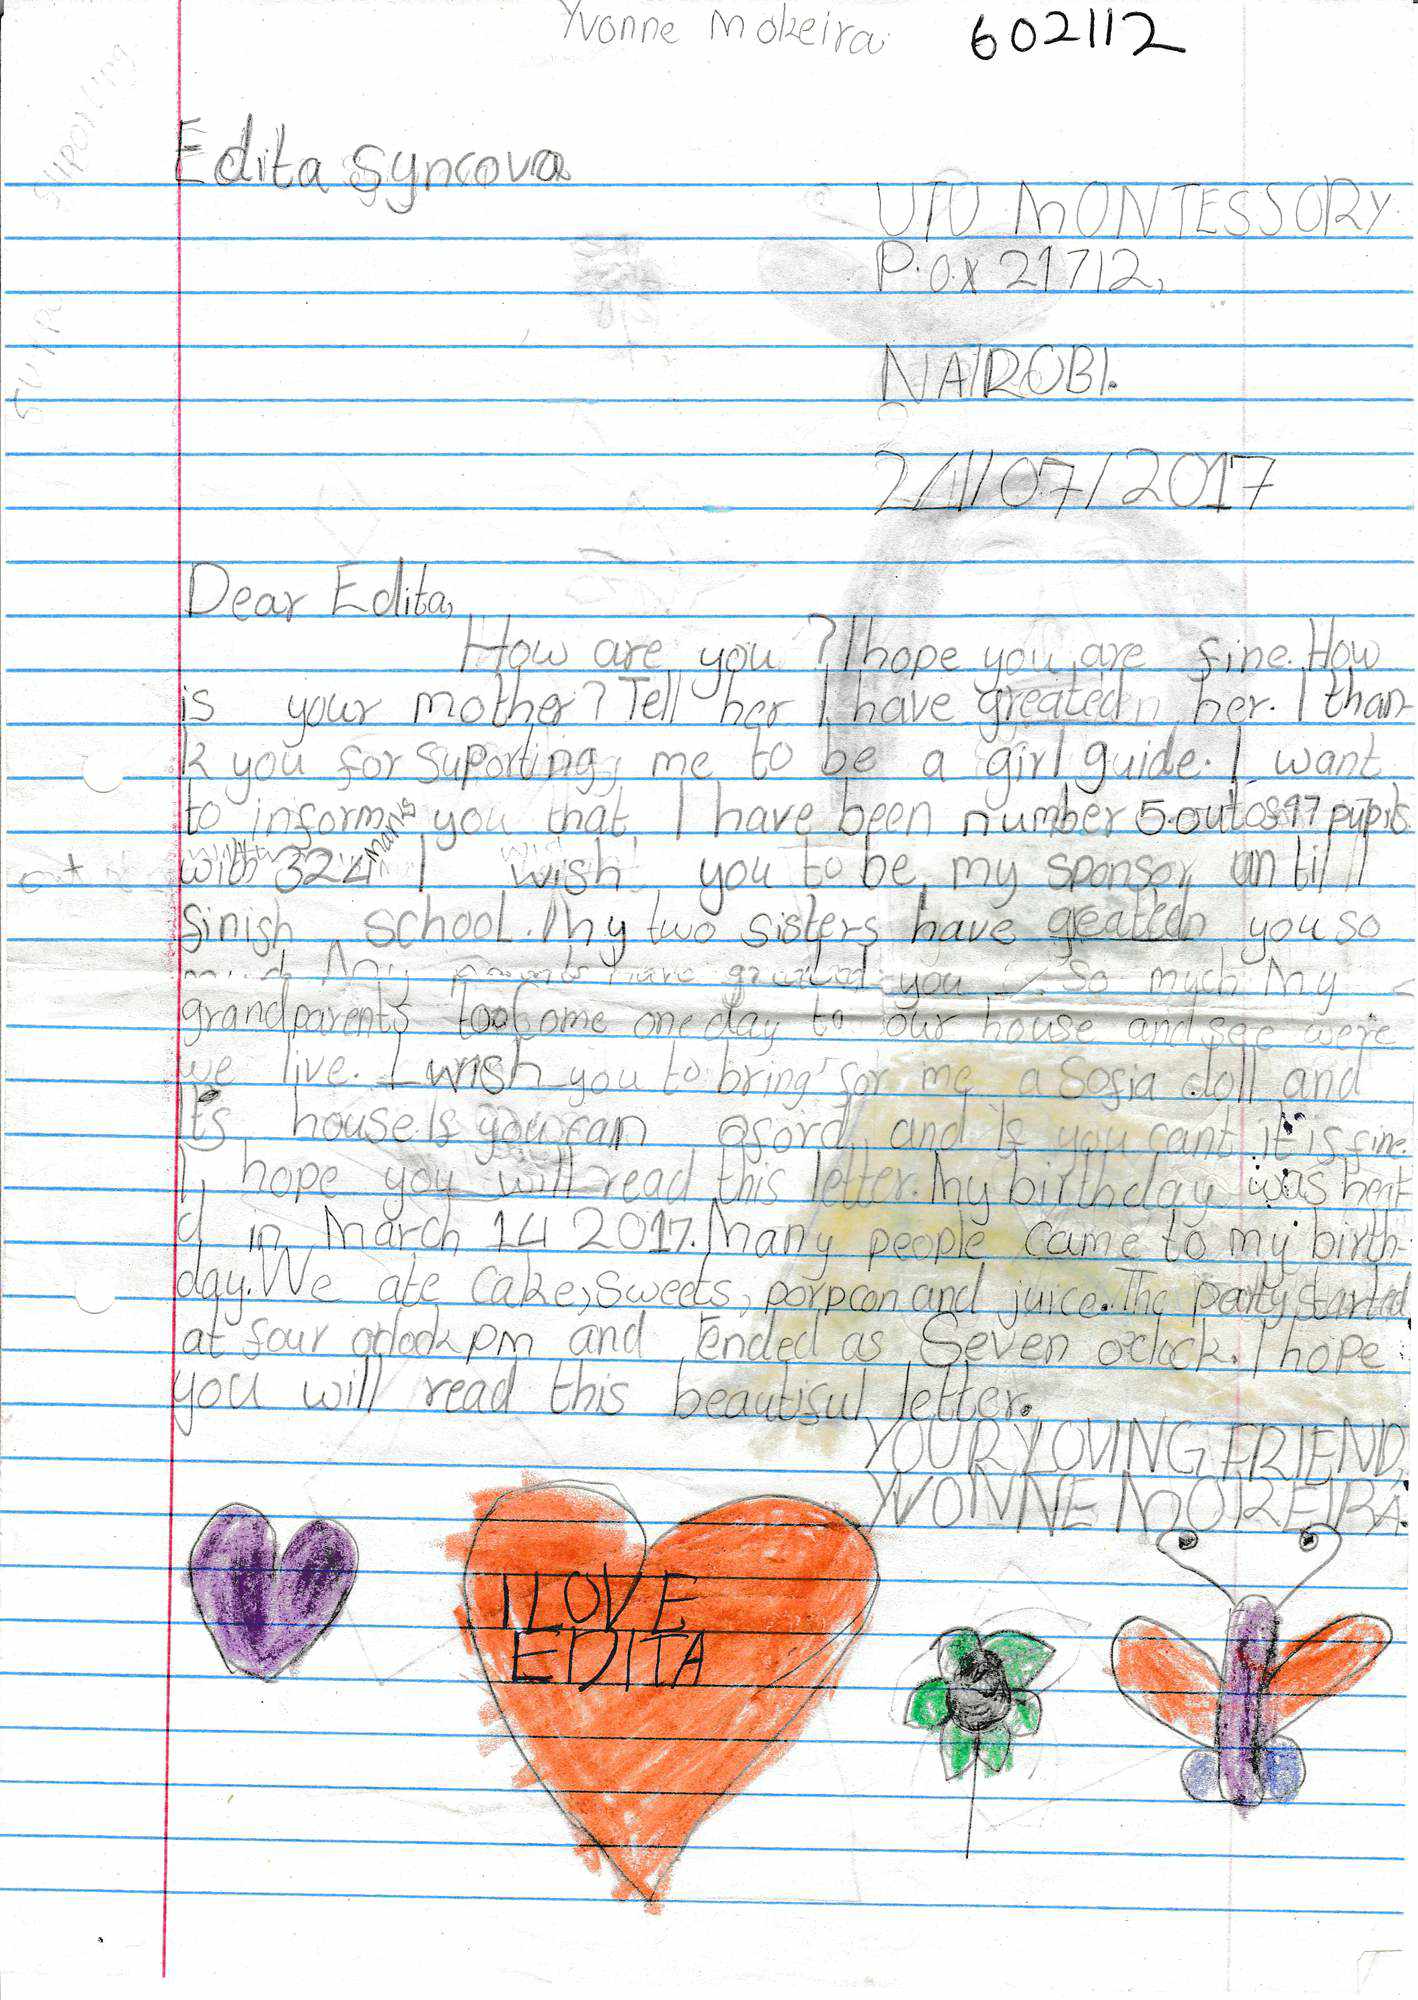 Yvonne Mokeira 602112
Edita Syncova
UFU MONTESSORY
P.ox 21712,
NAIROBI.
24/07/2017
Dear Edita,
How are you? I hope you are fine. How
is your mother? Tell her I have greated her. I than-
k you for suporting me to be a girl guide. I want
to inform you that I have been number 5 out of 97 pupils
with 324 marks I wish you to be my sponsor until I
finish school. My two sisters have greated you so
My have greated you so much. My
grandparents too. Come one day to our house and see were
we live. I wish you to bring for me a Sofia doll and
It's house If you can aford, and If you cant it is fine.
I hope you will read this letter. My birthday was heat
d in March 14 2017. Many people came to my birth-
day. We ate cake, sweets, porpcon and juice. The party started
at four o'clock pm and ended as seven o'clock. I hope
you will read this beautiful letter.
YOUR LOVING FRIEND,
YVONNE MOKEIRA.
I LOVE
EDITA